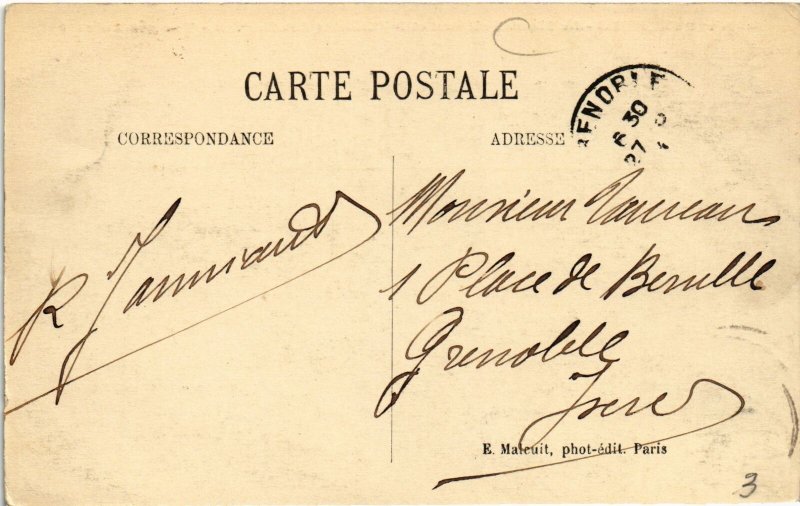 CARTE POSTALE
CORRESPONDANCE
ADRESSE
GRENOBLE
30
27
R Janniard
Monsieur
1 Place de Berulle
Grenoble
Isere
E. Malcuit, phot-édit. Paris
3